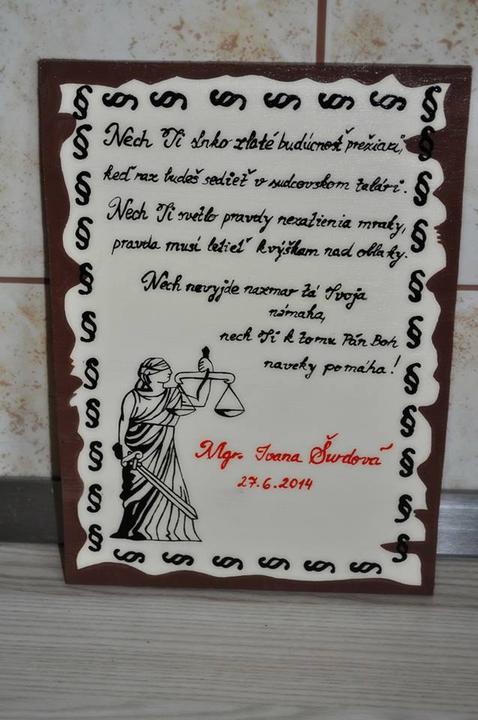 Nech Ti slnko zlaté budúcnosť prežiari,
keď raz budeš sedieť v sudcovskom talári.
Nech Ti svetlo pravdy nezatienia mraky,
pravda musí letieť k výškam nad oblaky.
Nech nevyjde nazmar tá Tvoja
námaha,
nech Ti k tomu Pán Boh
naveky pomáha!
Mgr. Ivana Švrdová
27.6.2014